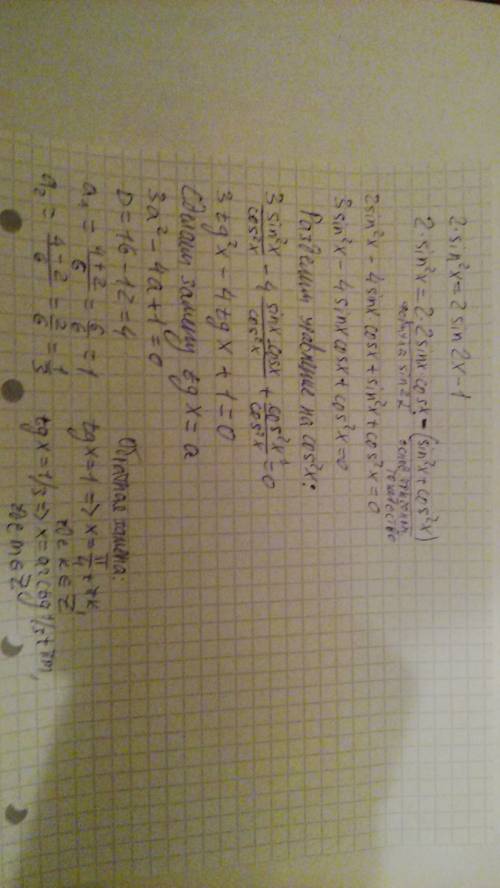 2·sin²x = 2 sin 2x - 1
2 sin²x = 2·2 sinx cosx - (sin²x + cos²x)
формула sin2x основ. тригоном. тождество
2sin²x - 4 sinx cosx + sin²x + cos²x = 0
3 sin²x - 4 sinx cosx + cos²x = 0
Разделим уравнение на cos²x:
3 sin²x/cos²x - 4 sinx cosx/cos²x + cos²x/cos²x = 0
3 tg²x - 4 tgx + 1 = 0
Сделаем замену tgx = a
3a² - 4a + 1 = 0
D = 16 - 12 = 4
a₁ = (4+2)/6 = 6/6 = 1
a₂ = (4-2)/6 = 2/6 = 1/3
Обратная замена:
tgx = 1 => x = π/4 + πk,
где k ∈ Z
tgx = 1/3 => x = arctg 1/3 + πm,
где m ∈ Z